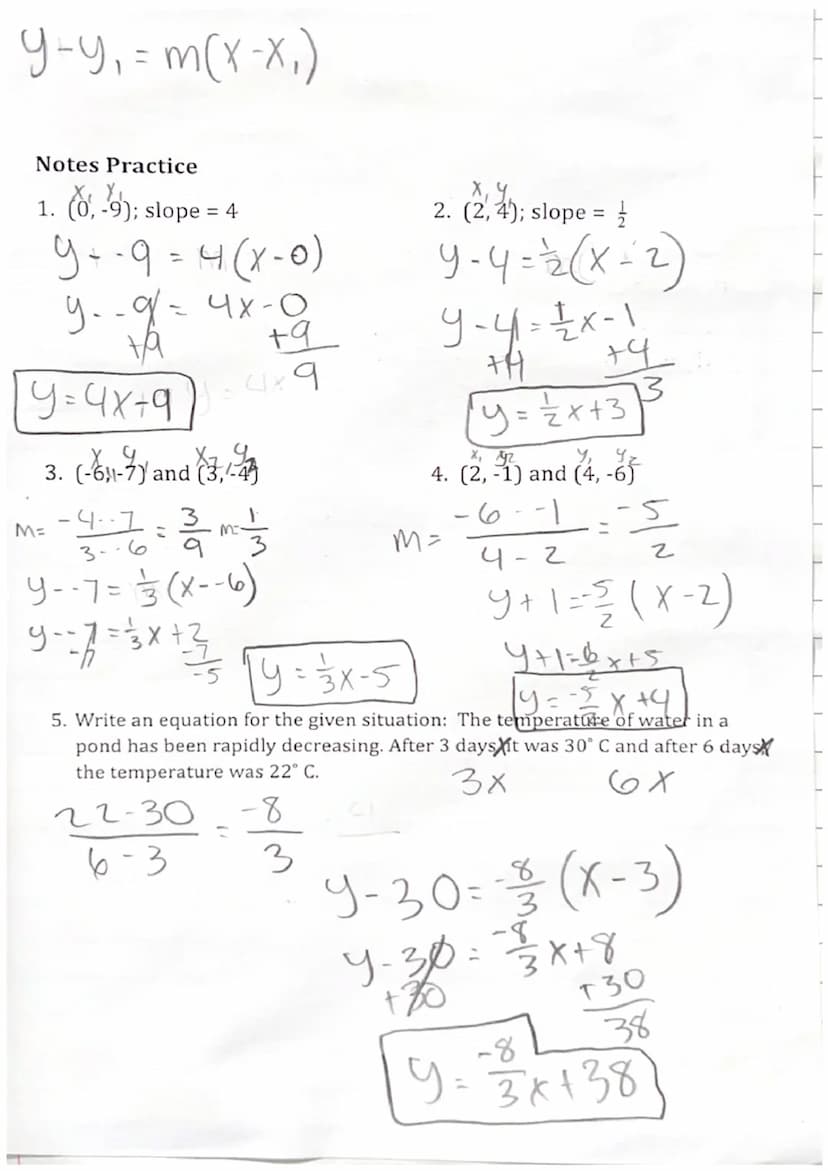 y-y₁ = m(x-x₁)
Notes Practice
x₁ y₁
1. (0, -9); slope = 4
y--9 = 4(x-0)
y--9 = 4x-0
+9 +9
9
y=4x+9
x₁ y₁
2. (2, 4); slope = 1/2
y-4=1/2(x-2)
y-4=1/2x-1
+4 +4
3
y=1/2x+3
3. (-6, -7) and (3, -4)
m= -4--7/3--6 = 3/9 m=1/3
y--7=1/3(x--6)
y--7=1/3x+2
-7 -7
-5
y=1/3x-5
x₁ y₂ y₁ y₂
4. (2, -1) and (4, -6)
m= -6--1/4-2 = -5/2
y+1=-5/2(x-2)
y+1=-5/2x+5
y=-5/2x+4
5. Write an equation for the given situation: The temperature of water in a
pond has been rapidly decreasing. After 3 days it was 30° C and after 6 days
the temperature was 22° C.
3x 6x
22-30/6-3 = -8/3
y-30=-8/3(x-3)
y-30=-8/3x+8
+30 +30
38
y=-8/3x+38